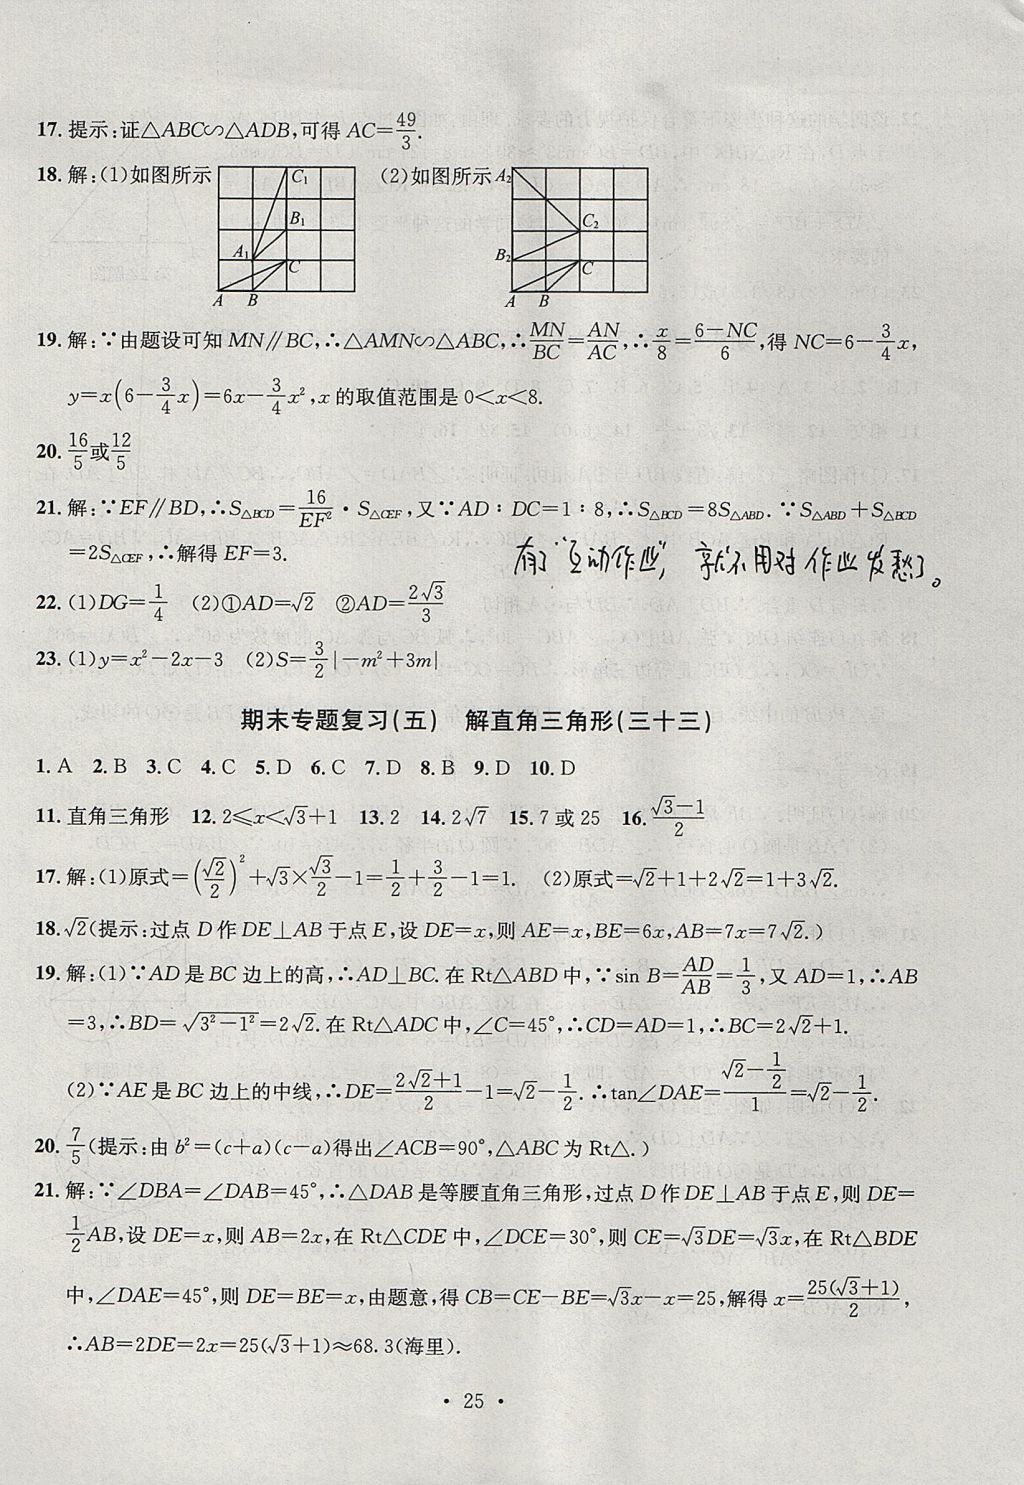 17.提示:证△ABC∽△ADB,可得 AC=49/3.
18.解:(1)如图所示 (2)如图所示
C₁ B₁ A₁ C A B
A₂ C₂ B₂ C A B
19.解:∵由题设可知 MN∥BC,∴△AMN∽△ABC,∴MN/BC=AN/AC,∴x/8=(6-NC)/6,得 NC=6-3/4x,
y=x(6-3/4x)=6x-3/4x²,x 的取值范围是 0<x<8.
20. 16/5或12/5
21.解:∵EF∥BD,∴S△BCD=16/EF²·S△CEF,又∵AD∶DC=1∶8,∴S△BCD=8S△ABD.∵S△ABD+S△BCD
=2S△CEF,∴解得 EF=3.
有了“互动作业”,就不用对作业发愁了。
22.(1)DG=1/4 (2)①AD=√2 ②AD=2√3/3
23.(1)y=x²-2x-3 (2)S=3/2|-m²+3m|
期末专题复习(五) 解直角三角形(三十三)
1.A 2.B 3.C 4.C 5.D 6.C 7.D 8.B 9.D 10.D
11.直角三角形 12.2≤x<√3+1 13.2 14.2√7 15.7 或 25 16.(√3-1)/2
17.解:(1)原式=(√2/2)²+√3×√3/2-1=1/2+3/2-1=1. (2)原式=√2+1+2√2=1+3√2.
18.√2(提示:过点 D 作 DE⊥AB 于点 E,设 DE=x,则 AE=x,BE=6x,AB=7x=7√2.)
19.解:(1)∵AD 是 BC 边上的高,∴AD⊥BC.在 Rt△ABD 中,∵sin B=AD/AB=1/3,又 AD=1,∴AB
=3,∴BD=√(3²-1²)=2√2.在 Rt△ADC 中,∠C=45°,∴CD=AD=1,∴BC=2√2+1.
(2)∵AE 是 BC 边上的中线,∴DE=(2√2+1)/2-1=√2-1/2.∴tan∠DAE=(√2-1/2)/1=√2-1/2.
20. 7/5(提示:由 b²=(c+a)(c-a)得出∠ACB=90°,△ABC 为 Rt△.)
21.解:∵∠DBA=∠DAB=45°,∴△DAB 是等腰直角三角形,过点 D 作 DE⊥AB 于点 E,则 DE=
1/2AB,设 DE=x,则 AB=2x,在 Rt△CDE 中,∠DCE=30°,则 CE=√3DE=√3x,在 Rt△BDE
中,∠DAE=45°,则 DE=BE=x,由题意,得 CB=CE-BE=√3x-x=25,解得 x=25(√3+1)/2,
∴AB=2DE=2x=25(√3+1)≈68.3(海里).
· 25 ·